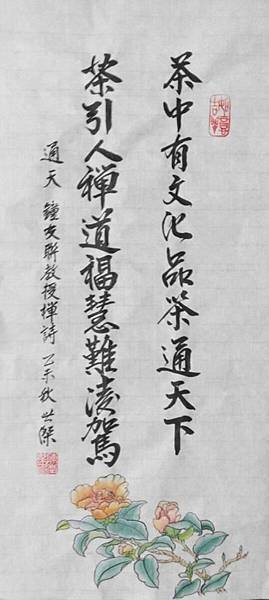 茶中有文化品茶通天下
茶引人禅道福慧難凌駕
通天 鐘友聯教授禅詩 乙未秋 世傑